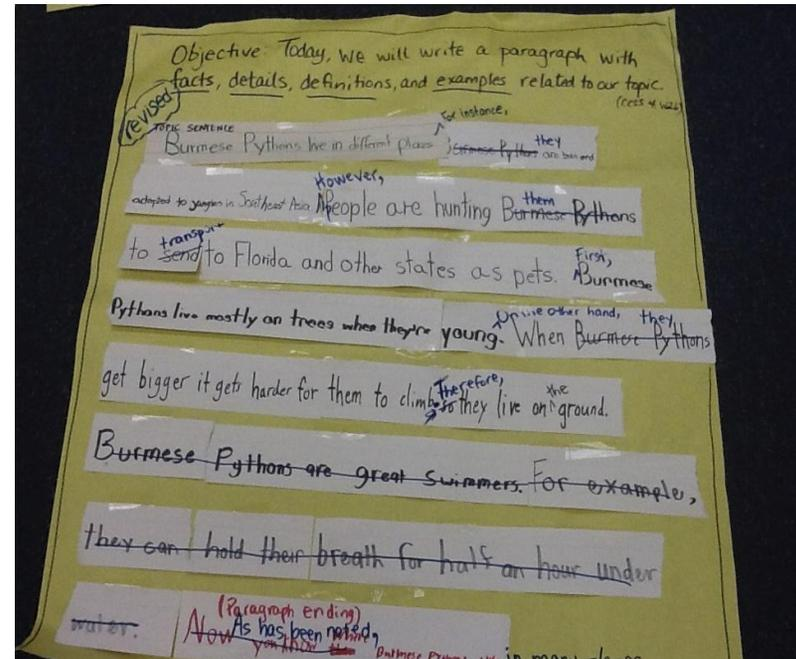 Objective: Today, we will write a paragraph with
facts, details, definitions, and examples related to our topic.
revised
TOPIC SENTENCE
For instance,
Burmese Pythons live in different places Burmese Pythons they are born and
However,
adapted to jungles in Southeast Asia People are hunting Burmese Pythons them
to send transport to Florida and other states as pets. First, Burmese
Pythons live mostly on trees when they're young. On the other hand, When Burmese Pythons they
get bigger it gets harder for them to climb. so Therefore, they live on the ground.
Burmese Pythons are great swimmers. For example,
they can hold their breath for half an hour under
water.
(Paragraph ending)
Now As has been noted,
you know
Burmese